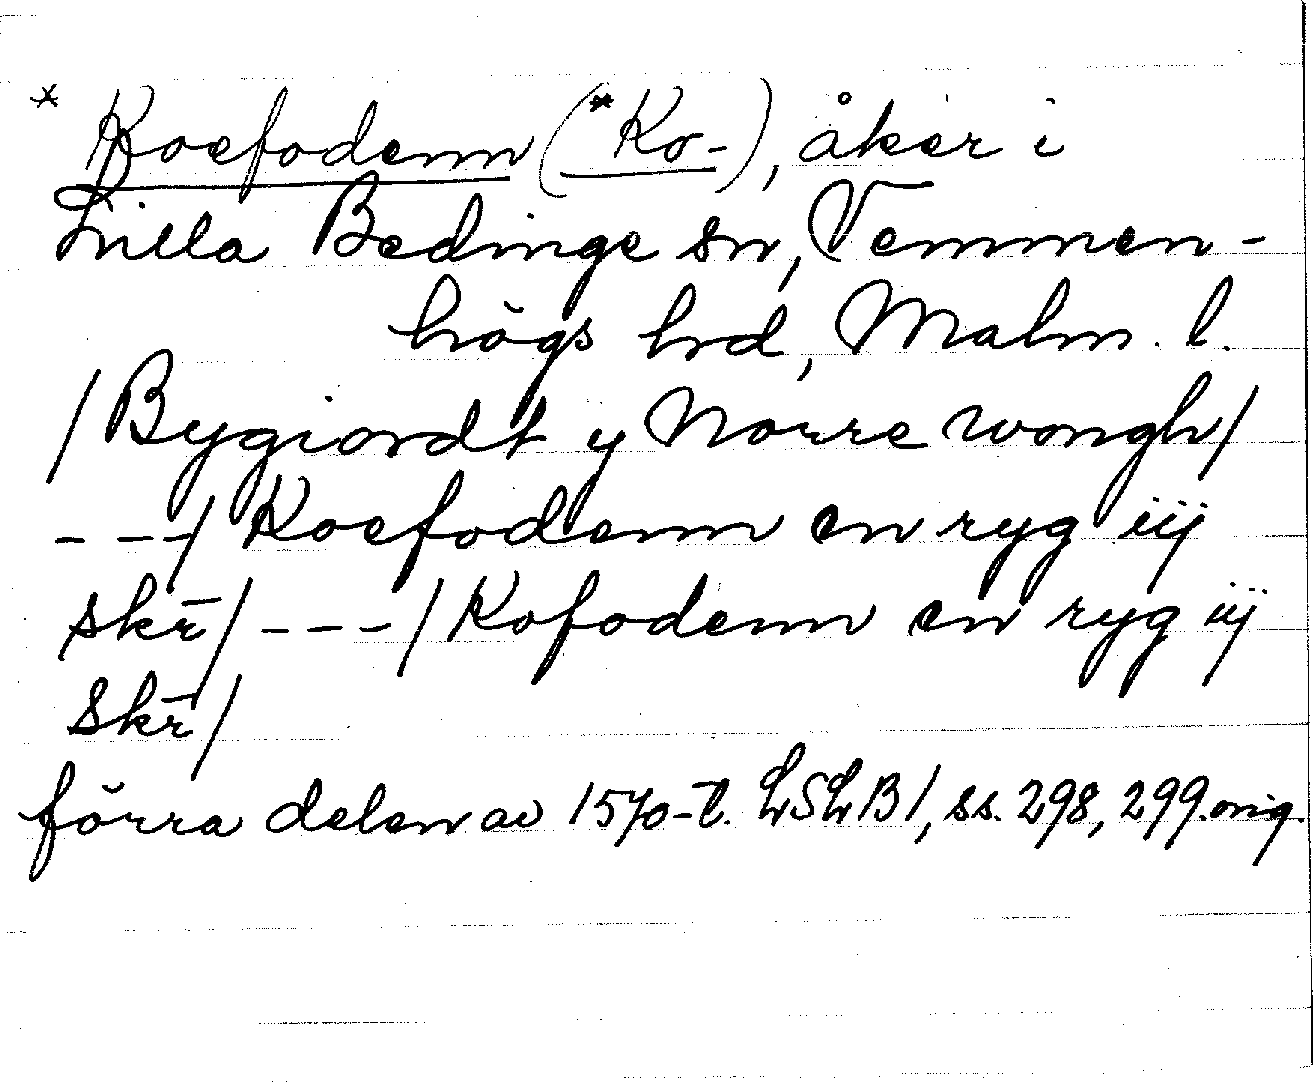 * Koefodenn (*Ko-), åker i
Lilla Bedinge sn, Vemmen-
högs hrd, Malm. l.
/Bygiordt y Norre wongh/
- - -/ Koefodenn en ryg iij
skr̄/ - - -/ Kofodenn en ryg iij
skr̄/
förra delen av 1570-t. LSLB1, ss. 298, 299.orig.